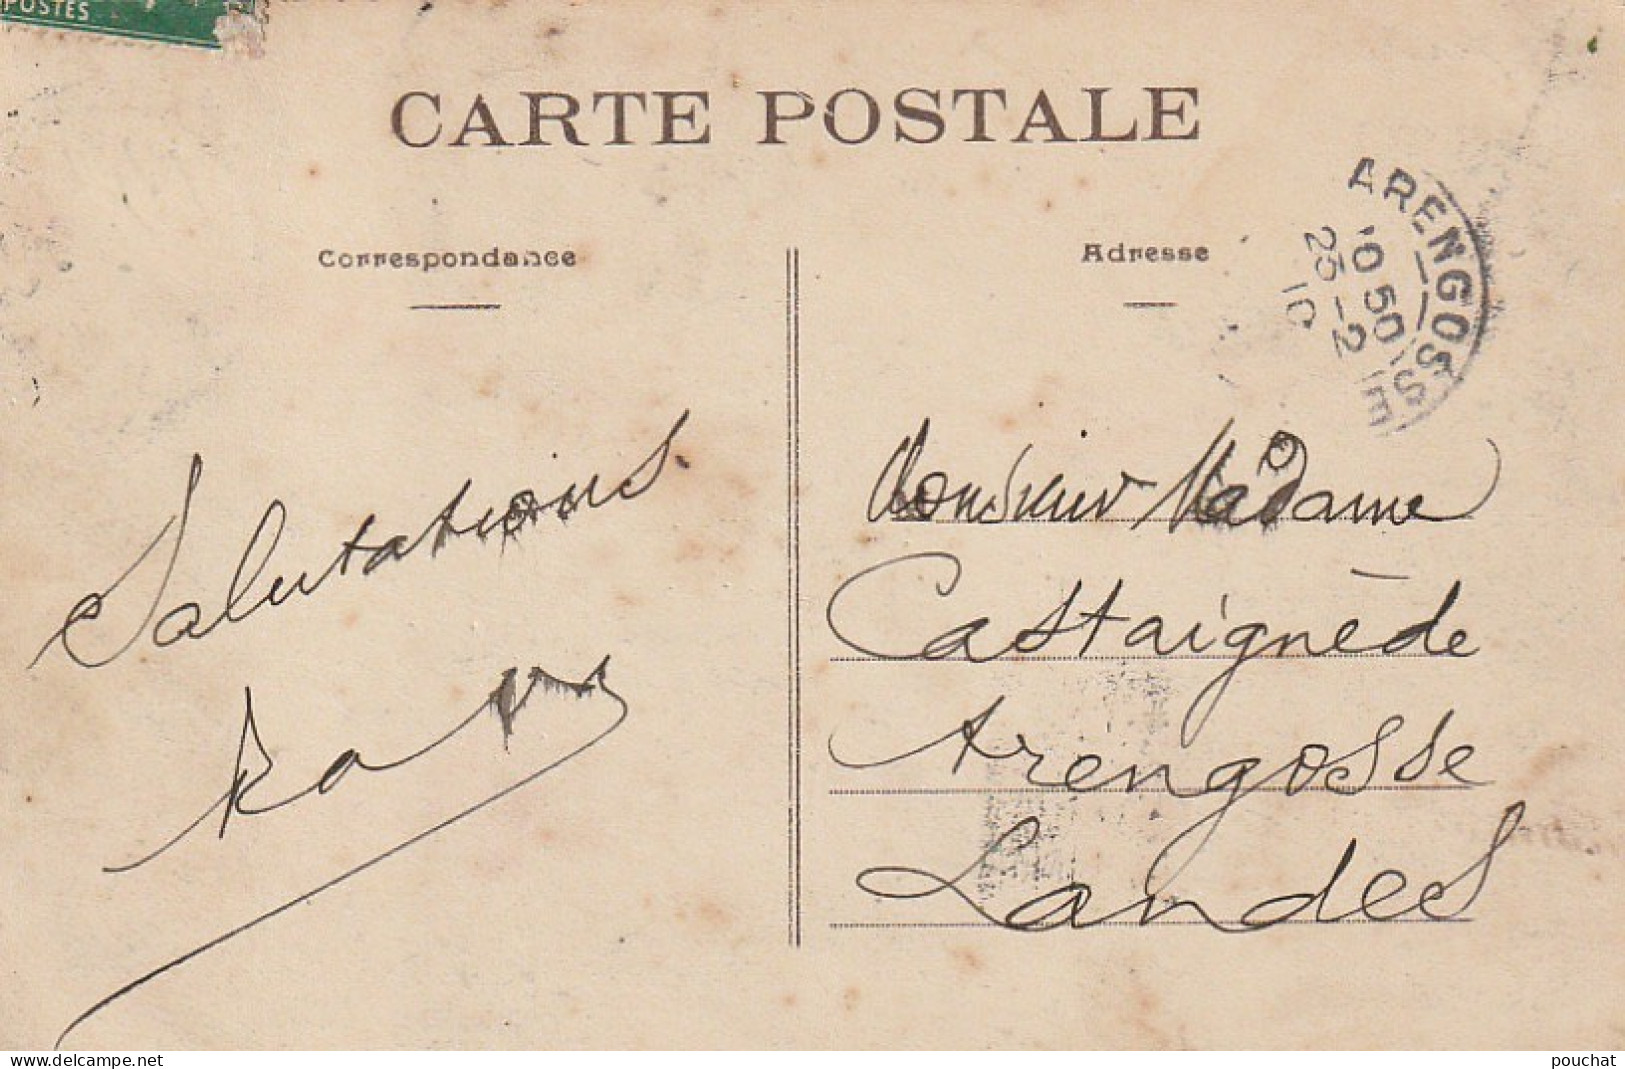 POSTES
CARTE POSTALE
Correspondance
Adresse
ARENGOSSE
10 50
25 -2
10
Salutations
Monsieur Madame
Castaignède
Arengosse
Landes
www.delcampe.net
pouchat